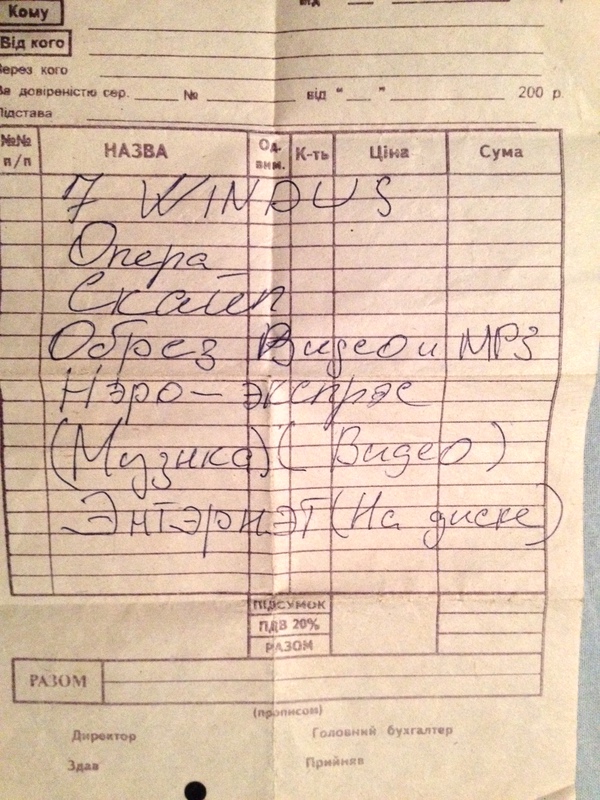 від
Кому
Від кого
Через кого
За довіреністю сер. ___ № ___ від “ ___ ” ___ 200 р.
Підстава
№№ п/п НАЗВА Од. вим. К-ть Ціна Сума
7 WINDUS
Опера
Скайп
Обрез Видео и MP3
Нэро — экспрэс
(Музыка) (Видео)
Энтэрнэт (На диске)
ПІДСУМОК
ПДВ 20%
РАЗОМ
РАЗОМ
(прописом)
Директор Головний бухгалтер
Здав Прийняв